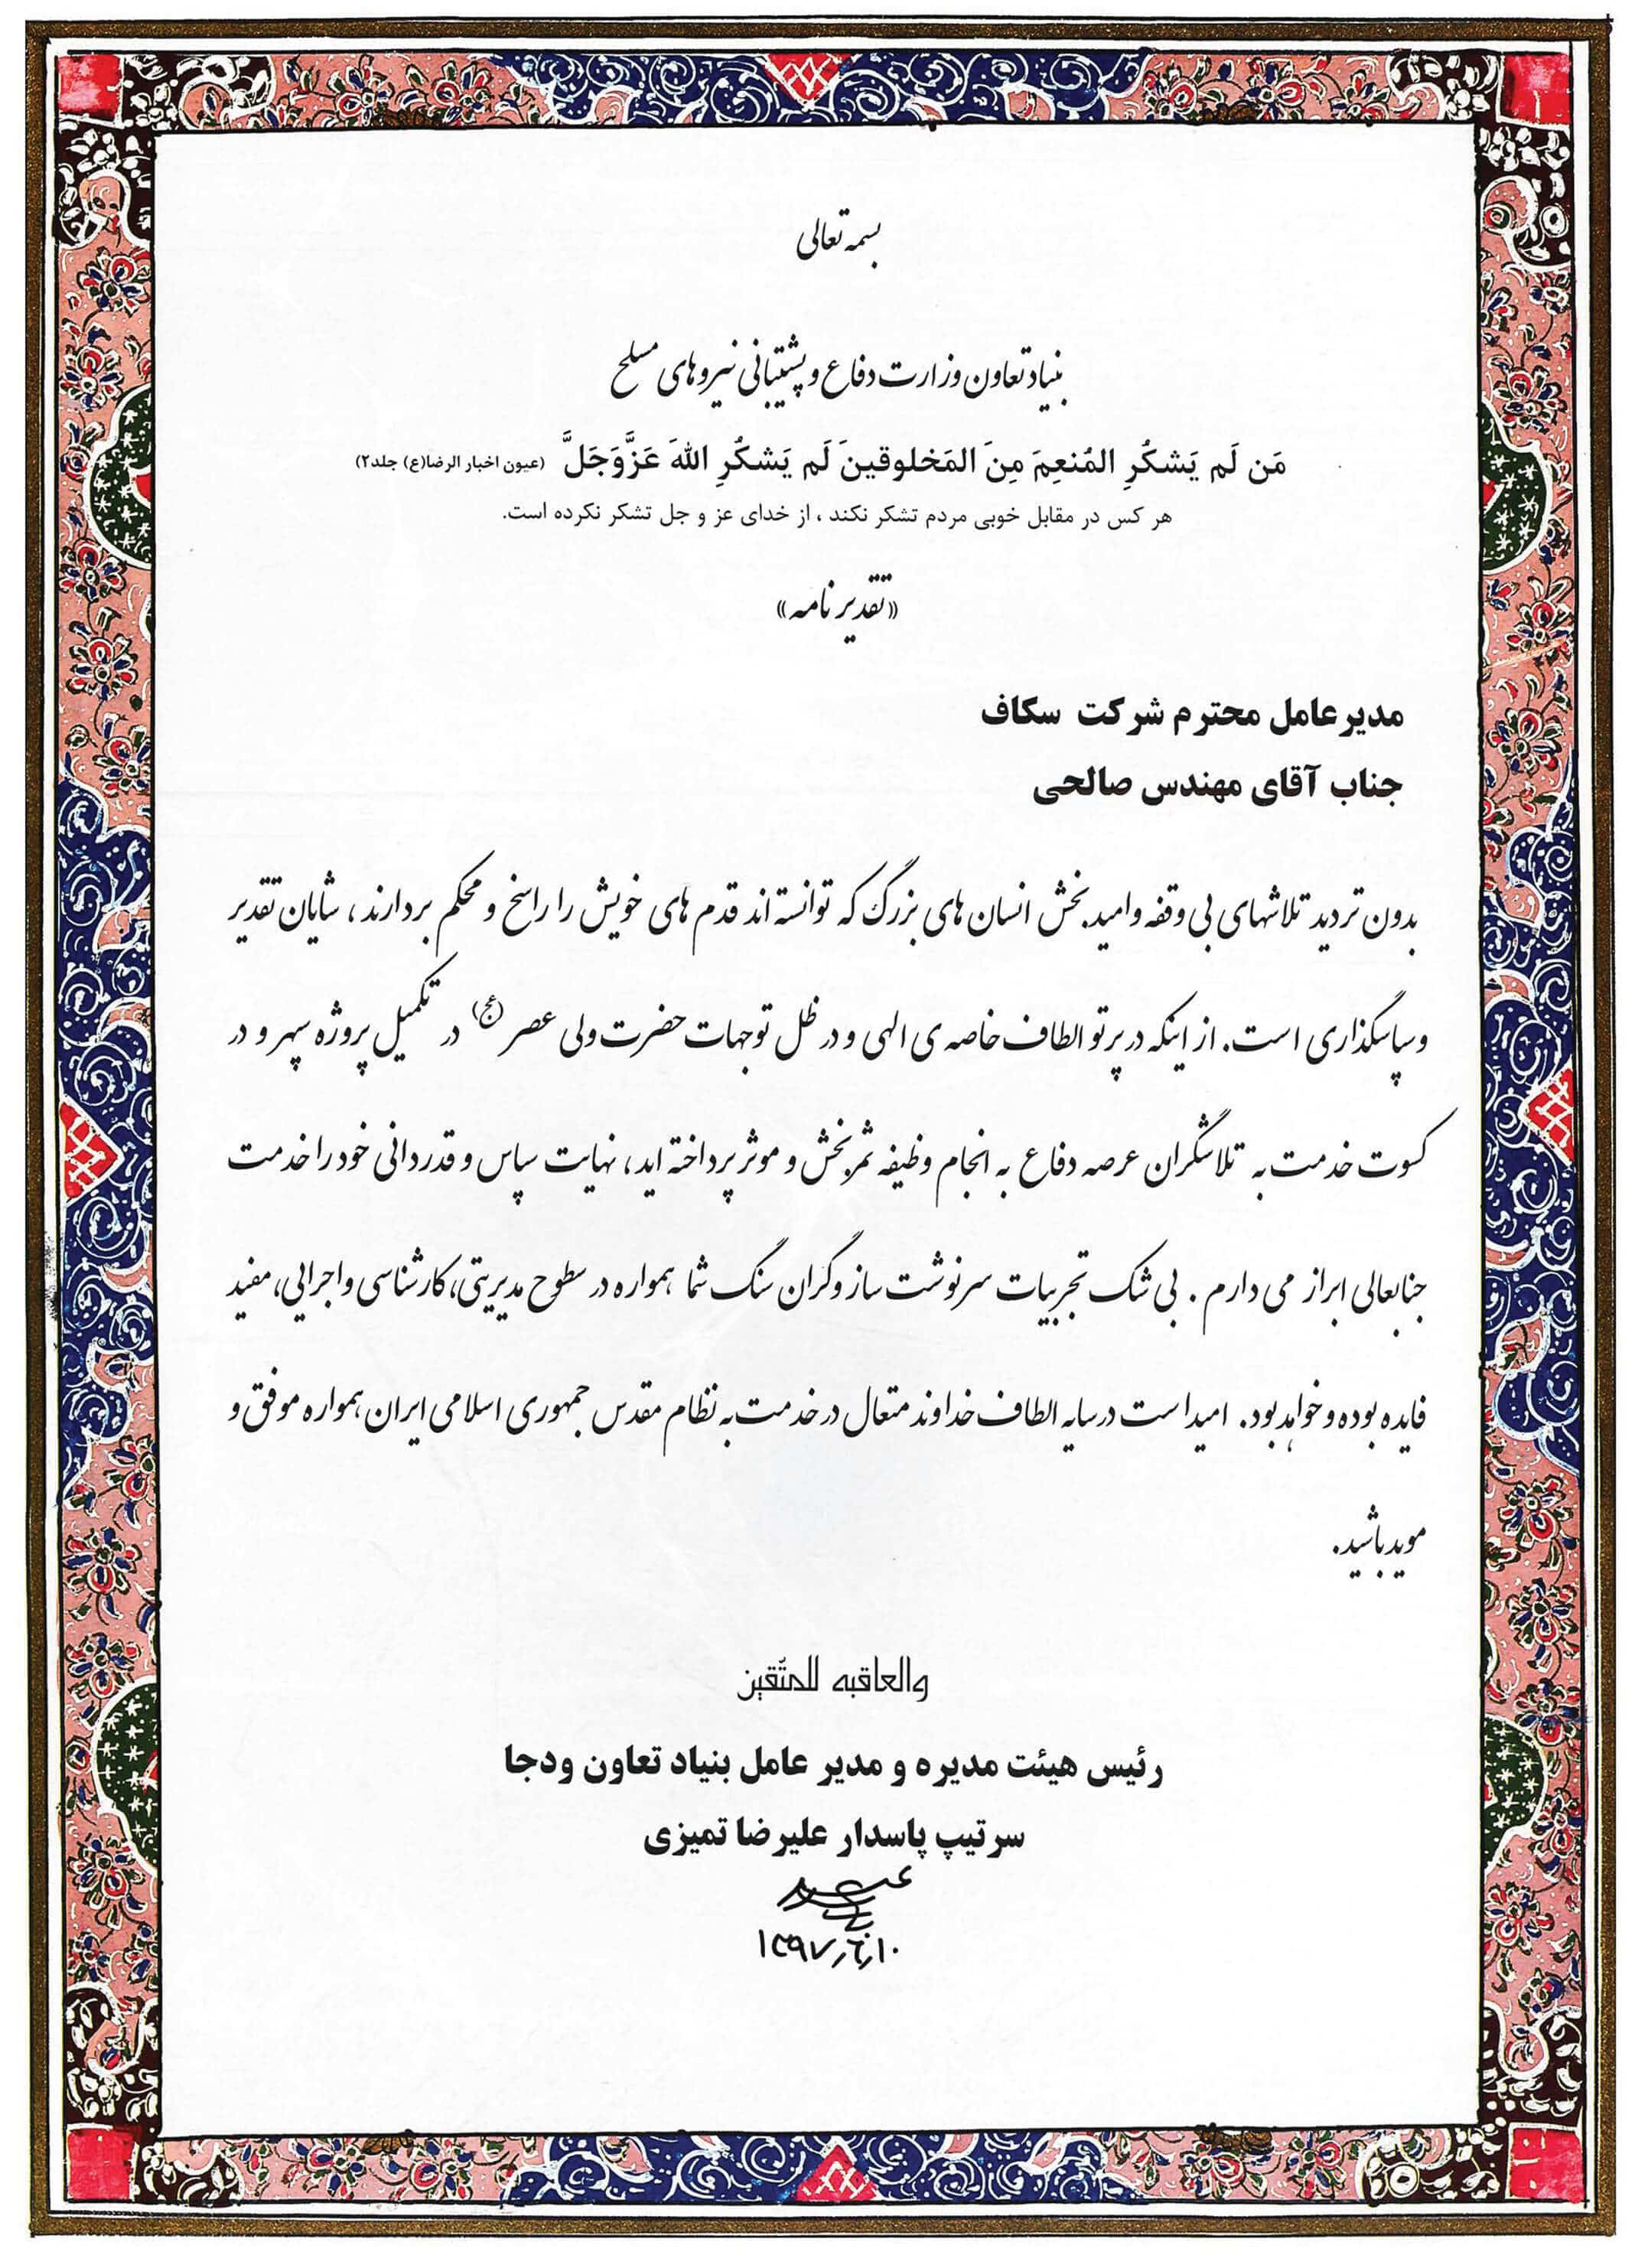 بسمه تعالی
بنیاد تعاون وزارت دفاع و پشتیبانی نیروهای مسلح
مَن لَم یَشکُرِ المُنعِمَ مِنَ المَخلوقینَ لَم یَشکُرِ اللهَ عَزَّوَجَلَّ (عیون اخبار الرضا(ع) جلد۲)
هر کس در مقابل خوبی مردم تشکر نکند ، از خدای عز و جل تشکر نکرده است.
«تقدیر نامه»
مدیرعامل محترم شرکت سکاف
جناب آقای مهندس صالحی
بدون تردید تلاشهای بی وقفه و امید بخش انسان های بزرگ که توانسته اند قدم های خویش را راسخ و محکم بردارند ، شایان تقدیر
و سپاسگذاری است. از اینکه در پرتو الطاف خاصه ی الهی و در ظل توجهات حضرت ولی عصر (عج) در تکمیل پروژه سپهر و در
کسوت خدمت به تلاشگران عرصه دفاع به انجام وظیفه ثمربخش و موثر پرداخته اید، نهایت سپاس و قدردانی خود را خدمت
جنابعالی ابراز می دارم . بی شک تجربیات سرنوشت ساز و گران سنگ شما همواره در سطوح مدیریتی، کارشناسی و اجرایی، مفید
فایده بوده و خواهد بود. امید است در سایه الطاف خداوند متعال در خدمت به نظام مقدس جمهوری اسلامی ایران، همواره موفق و
موید باشید.
والعاقبه للمتّقین
رئیس هیئت مدیره و مدیر عامل بنیاد تعاون ودجا
سرتیپ پاسدار علیرضا تمیزی